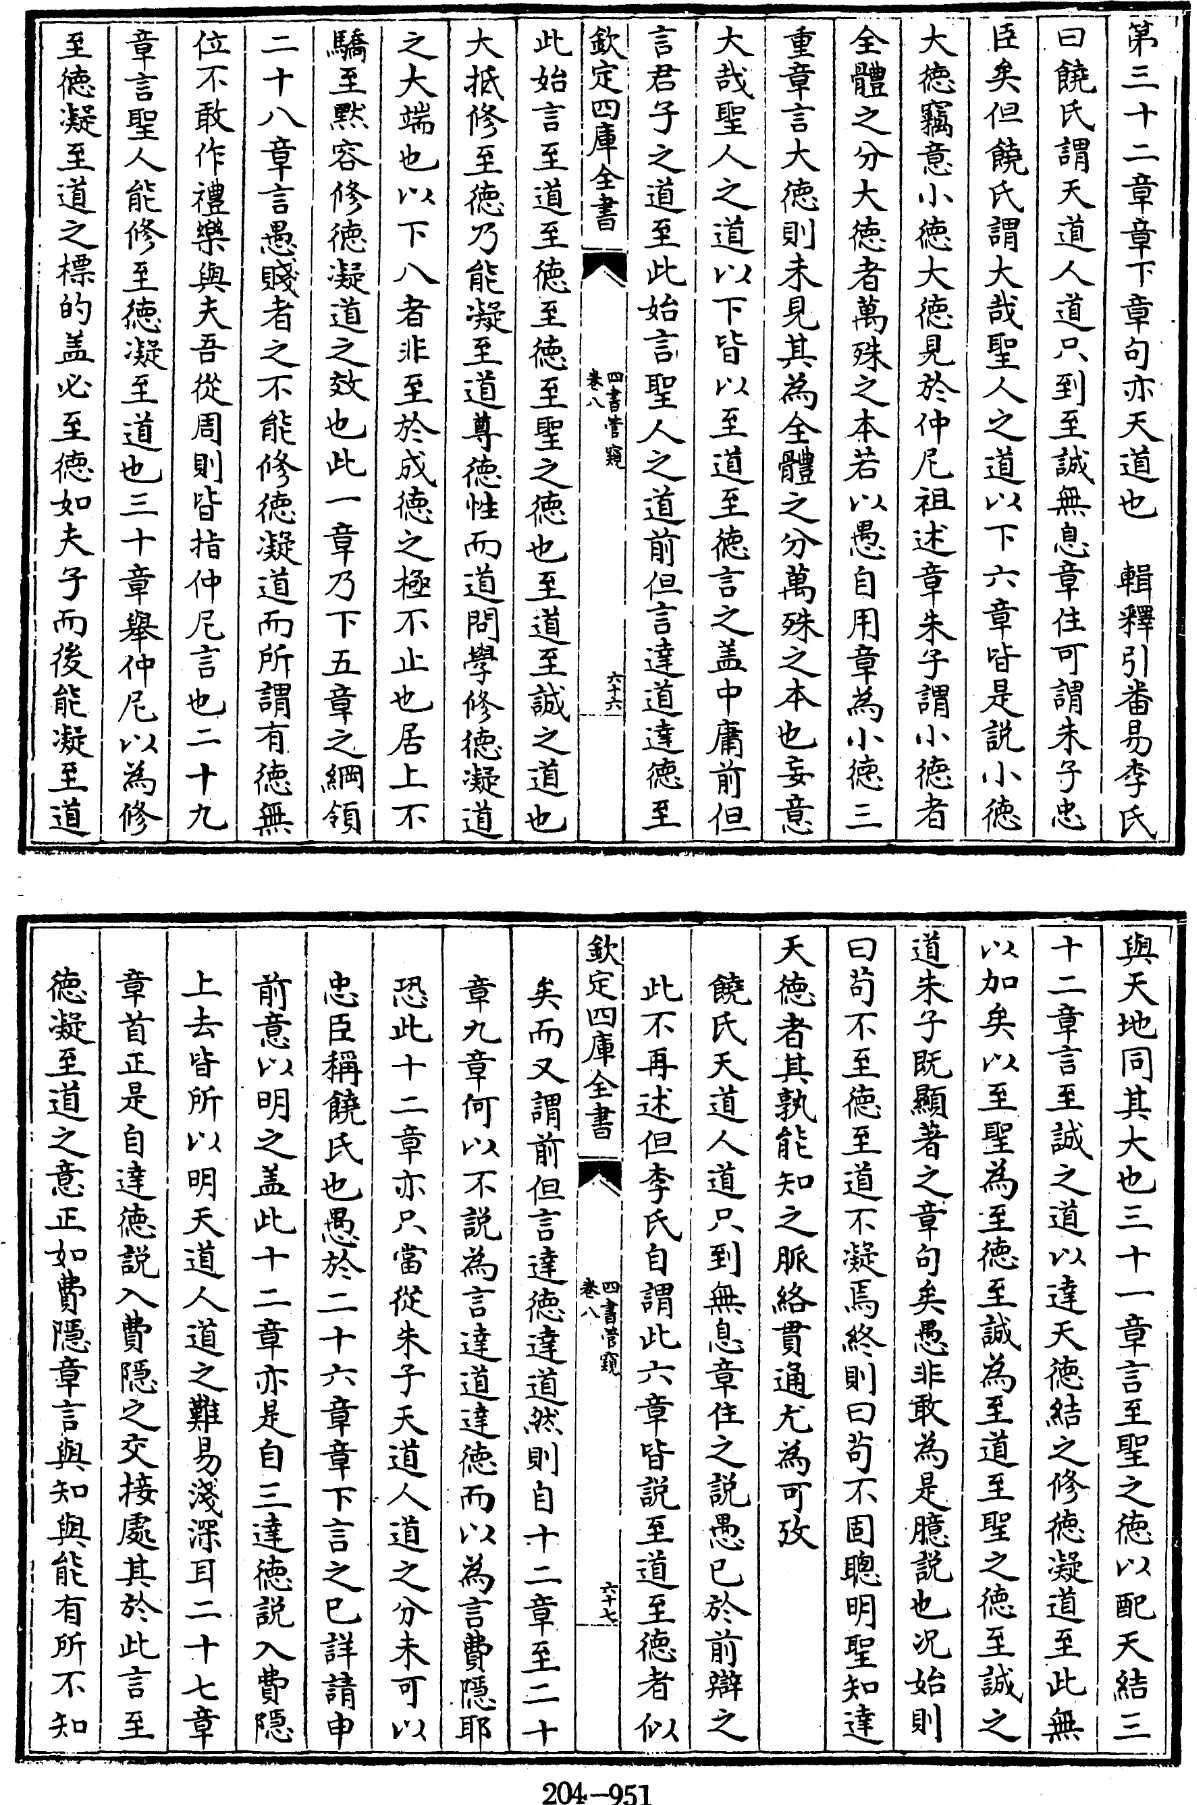 第三十二章章下章句亦天道也　輯釋引番易李氏
曰饒氏謂天道人道只到至誠無息章住可謂朱子忠
臣矣但饒氏謂大哉聖人之道以下六章皆是説小德
大德竊意小德大德見於仲尼祖述章朱子謂小德者
全體之分大德者萬殊之本若以愚自用章為小德三
重章言大德則未見其為全體之分萬殊之本也妄意
大哉聖人之道以下皆以至道至德言之盖中庸前但
言君子之道至此始言聖人之道前但言達道達德至
欽定四庫全書
四書管窺
卷八
六十六
此始言至道至德至德至聖之德也至道至誠之道也
大抵修至德乃能凝至道尊德性而道問學修德凝道
之大端也以下八者非至於成德之極不止也居上不
驕至黙容修德凝道之效也此一章乃下五章之綱領
二十八章言愚賤者之不能修德凝道而所謂有德無
位不敢作禮樂與夫吾從周則皆指仲尼言也二十九
章言聖人能修至德凝至道也三十章舉仲尼以為修
至德凝至道之標的盖必至德如夫子而後能凝至道
與天地同其大也三十一章言至聖之德以配天結三
十二章言至誠之道以達天德結之修德凝道至此無
以加矣以至聖為至德至誠為至道至聖之德至誠之
道朱子既顯著之章句矣愚非敢為是臆説也况始則
曰苟不至德至道不凝焉終則曰苟不固聰明聖知達
天德者其孰能知之脈絡貫通尤為可攷
饒氏天道人道只到無息章住之説愚已於前辯之
此不再述但李氏自謂此六章皆説至道至德者似
欽定四庫全書
四書管窺
卷八
六十七
矣而又謂前但言達德達道然則自十二章至二十
章九章何以不説為言達道達德而以為言費隠耶
恐此十二章亦只當從朱子天道人道之分未可以
忠臣稱饒氏也愚於二十六章章下言之已詳請申
前意以明之盖此十二章亦是自三達德説入費隠
上去皆所以明天道人道之難易淺深耳二十七章
章首正是自達德説入費隠之交接處其於此言至
德凝至道之意正如費隠章言與知與能有所不知
204-951